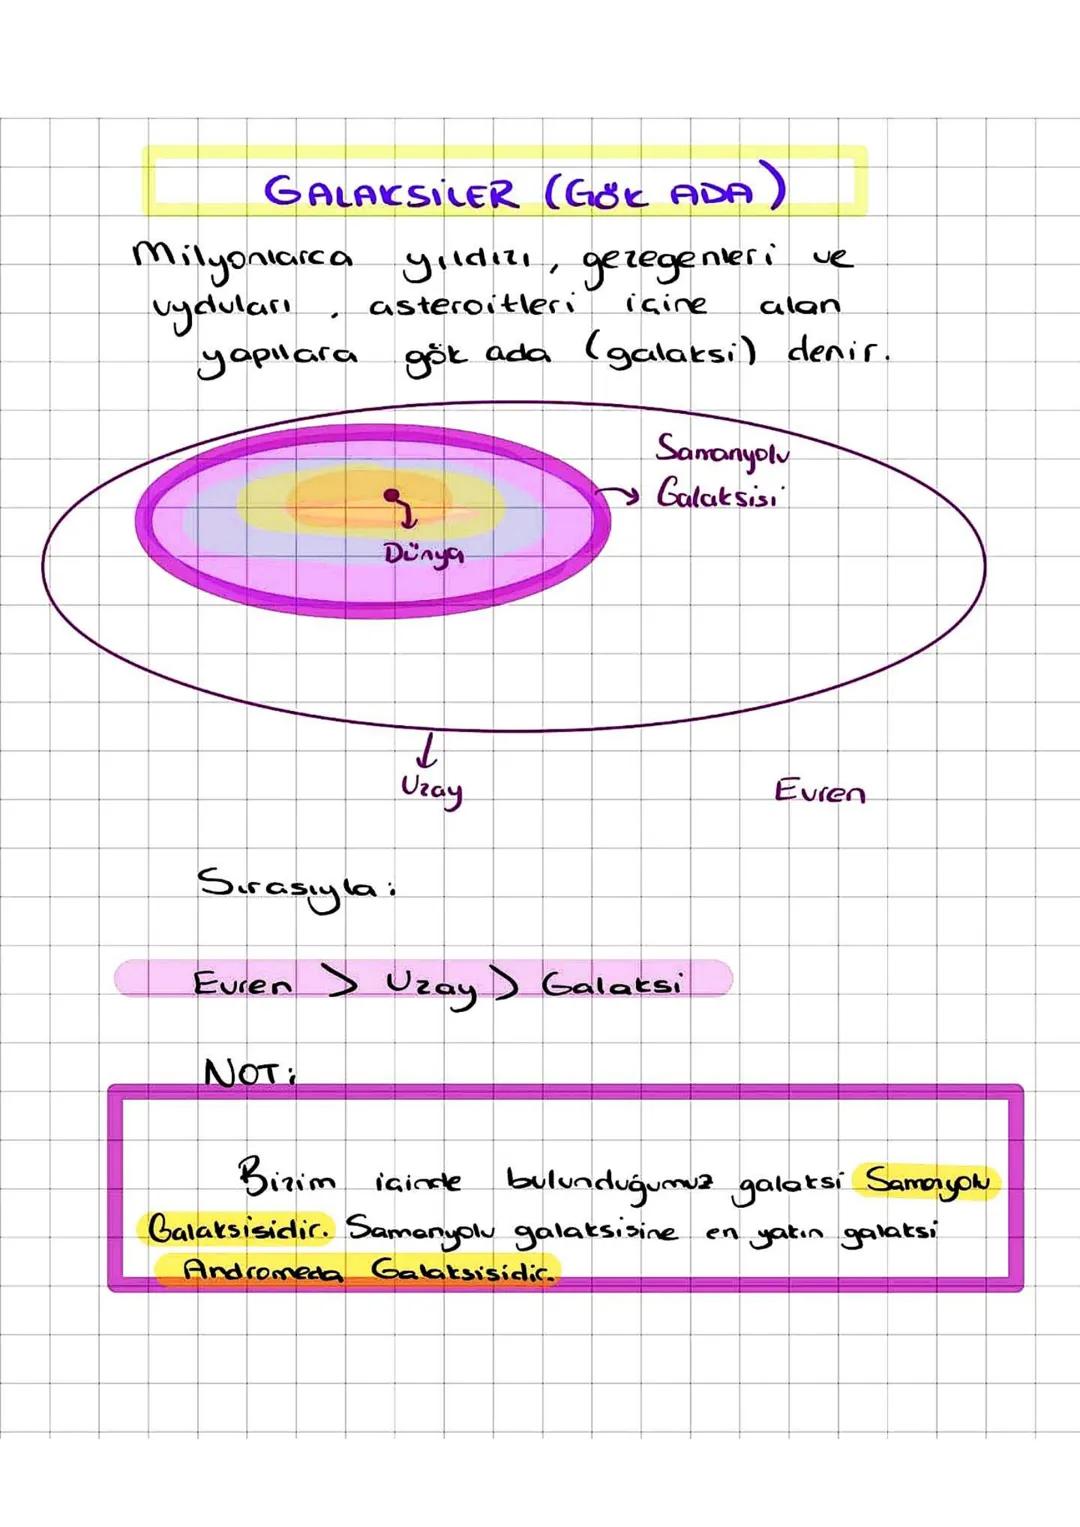 GALAKSİLER (GÖK ADA)
Milyonlarca yıldızı, gezegenleri ve
uyduları, asteroitleri içine alan
yapılara gök ada (galaksi) denir.
Samanyolu
Galaksisi
Dünya
Uzay
Evren
Sırasıyla:
Evren > Uzay > Galaksi
NOT:
Bizim içinde bulunduğumuz galaksi Samanyolu
Galaksisidir. Samanyolu galaksisine en yakın galaksi
Andromeda Galaksisidir.